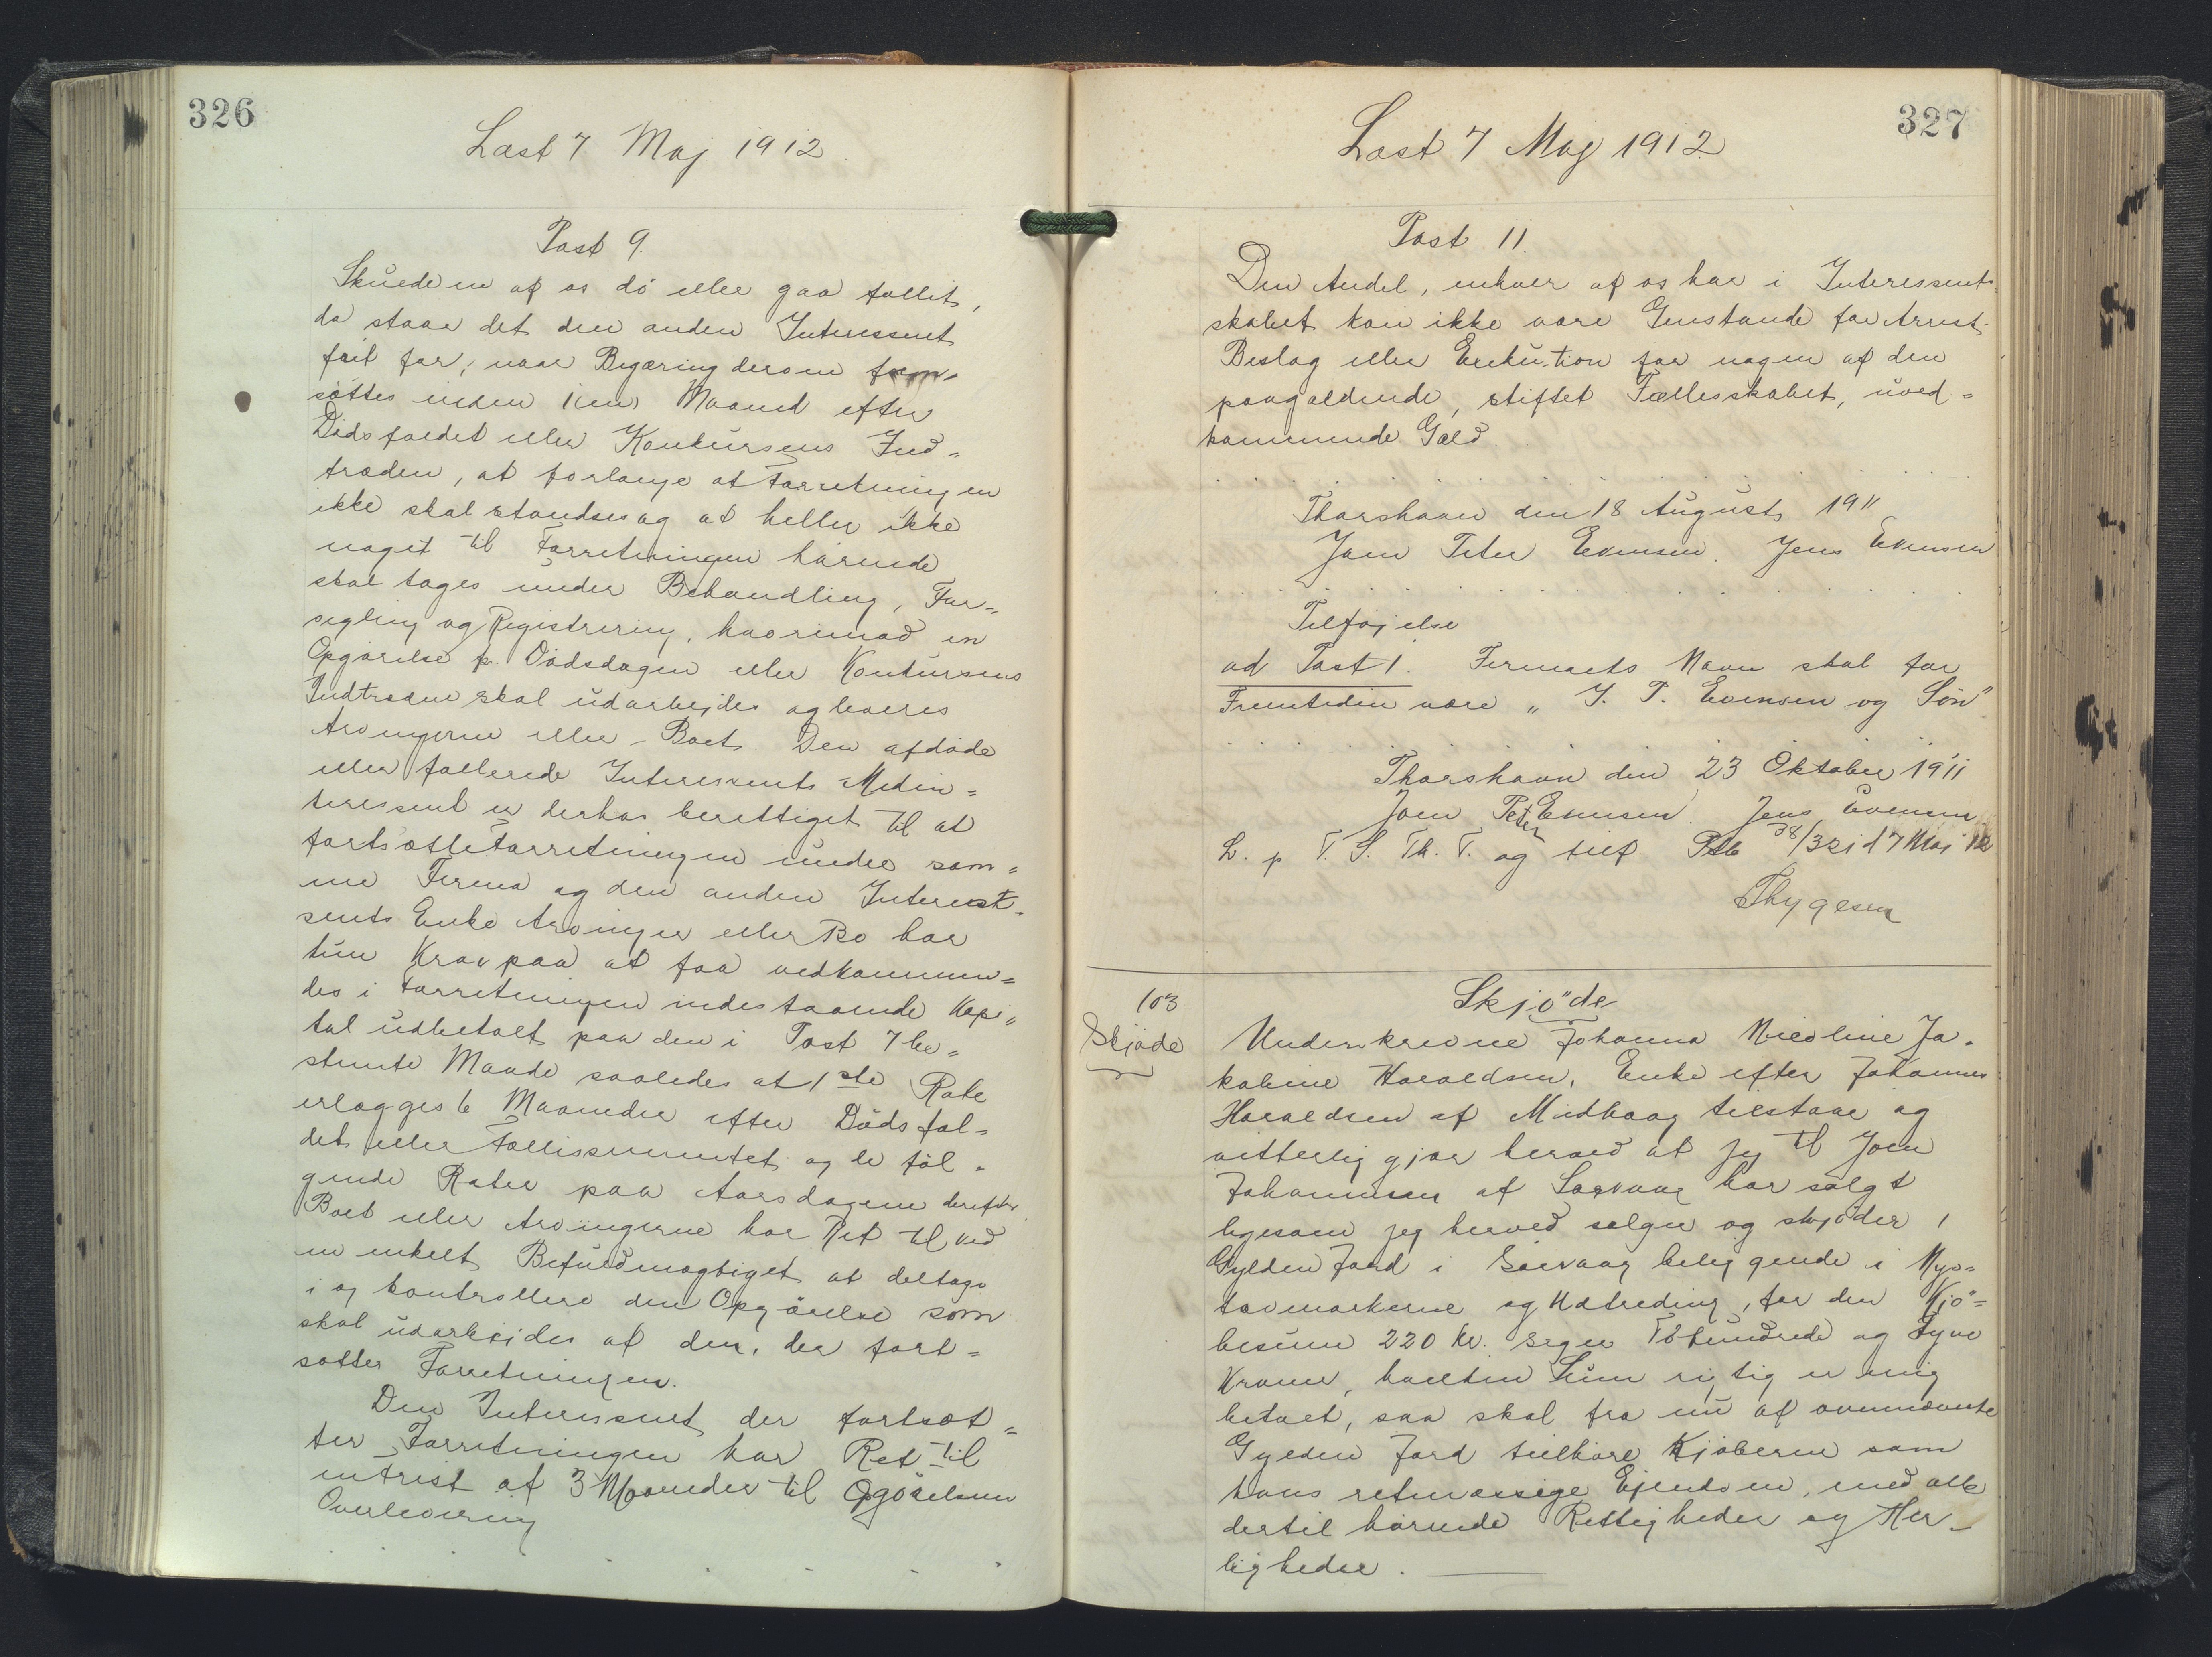 326
Læst 7 Maj 1912
Post 9.
Skulde en af os dö eller gaa fallit,
da staar det den anden Interessent
frit for, naar Begæring derom frem-
sættes inden 1 (en) Maaned efter
Dödsfaldet eller Konkursens Ind=
træden, at forlange at Forretningen
ikke skal standses og at heller ikke
noget til Forretningen hörende
skal tages under Behandling, For=
segling og Registrering, hvorimod en
Opgörelse pr. Dödsdagen eller Konkursens
Indtræden skal udarbejdes og leveres
Arvingerne eller Boet. Den afdöde
eller fallerede Interessents Medin=
teressent er derhos berettiget til at
fortsætte Forretningen under sam=
me Firma og den anden Interes=
sents Enke Arvinger eller Bo har
kun Krav paa at faa vedkommen=
des i Forretningen indestaaende Kapi=
tal udbetalt paa den i Post 7 be=
stemte Maade saaledes at 1ste Rate
erlægges 6 Maaneder efter Dödsfal=
det eller Fallissementet og de föl=
gende Rater paa Aarsdagene derefter
Boet eller Arvingerne har Ret til ved
en enkelt Befuldmægtiget at deltage
i og kontrollere den Opgörelse som
skal udarbejdes af den, der fort=
sætter Forretningen.
Den Interessent der fortsæt=
ter Forretningen har Ret til
en Frist af 3 Maaneder til Opgörelsens
Overlevering
327
Læst 7 Maj 1912
Post 11.
Den Andel, enhver af os har i Interessent-
skabet kan ikke være Genstande for Arrest-
Beslag eller Exekution for nogen af den
paagældende, stiftet Fællesskabet, uved=
kommende Gæld.
Thorshavn den 18 August 1911
Joen Peter Evensen. Jens Evensen
Tilföjelse
ad Post 1. Firmaets Navn skal for
Fremtiden være „ J. P. Evensen og Sön"
Thorshavn den 23 Oktober 1911
Joen Peter Evensen. Jens Evensen
L. p T. S. Th. T. og tilf Ptb 38/321 d 7 Maj 12
Thygesen
103
Skjöde
Skjöde
Underskrevne Johanna Nicoline Ja=
kobine Haraldsen, Enke efter Johannes
Haraldsen af Midvaag tilstaar og
vitterlig gjør herved at jeg til Joen
Johannesen af Sørvaag har solgt
ligesom jeg herved sælger og skjöder 1
Gylden Jord i Sörvaag beliggende i Myr=
temarkerne og Udtreding, for den Kjö=
besum 220 Kr. siger Tohundrede og Tyve
Kroner, hvilken Sum rigtig er mig
betalt, saa skal fra nu af ovennævnte
Gylden Jord tilhöre Kjöberen som
hans retmæssige Ejendom, med alle
dertil hörende Rettigheder og Her=
ligheder.